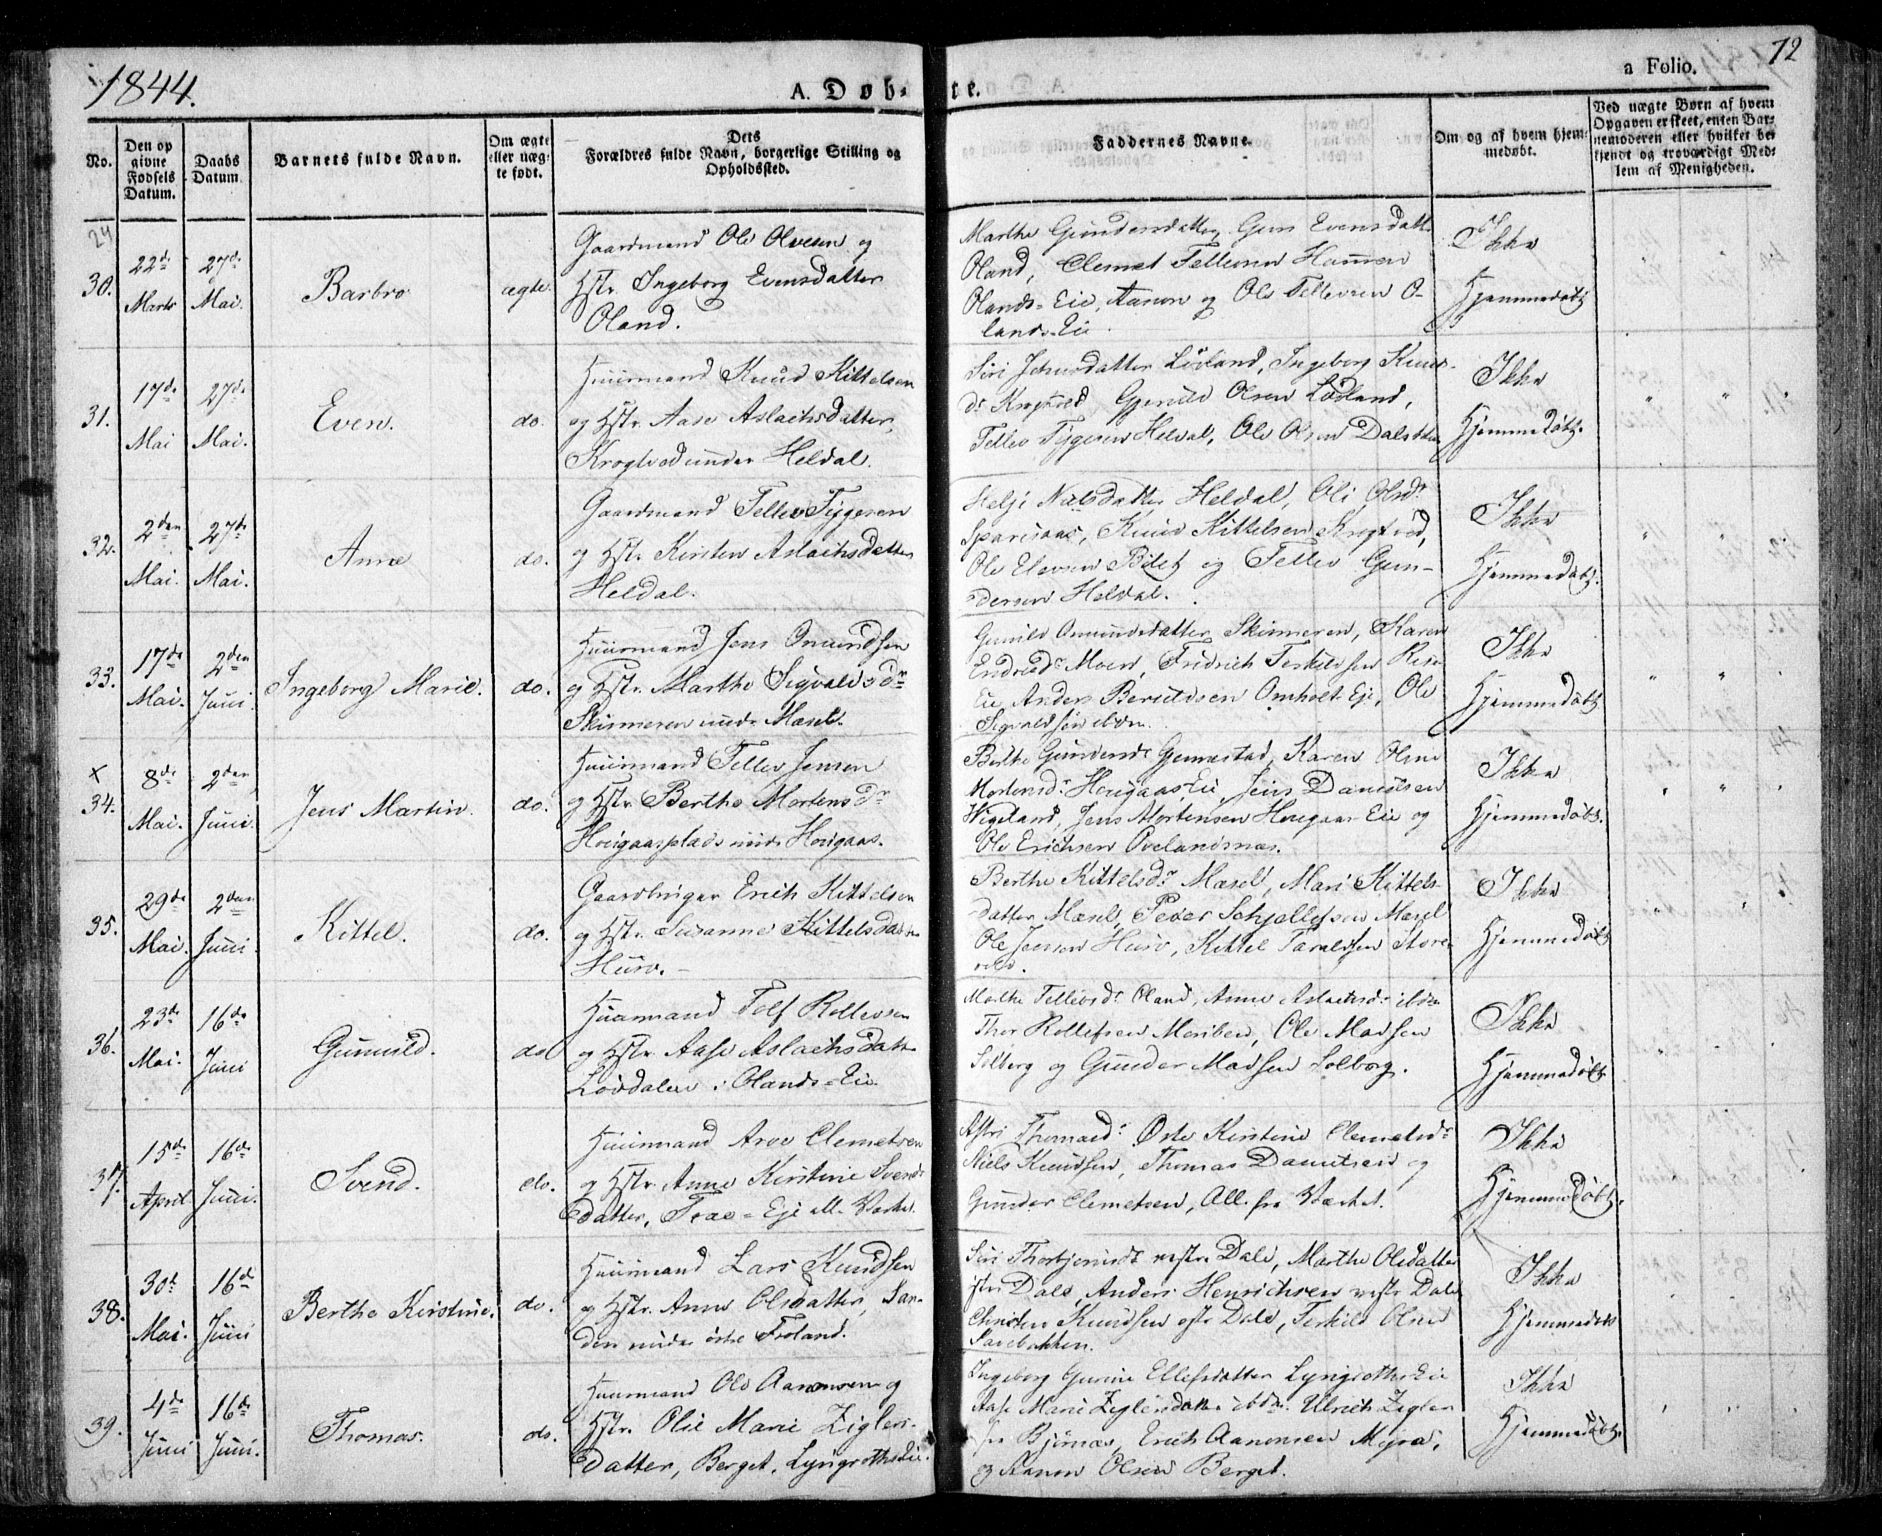 1844.
A. Døb-
te.
a Folio.
72
No.
Den op
givne
Fødsels
Datum.
Daabs
Datum.
Barnets fulde Navn.
Om ægte
eller uæg-
te født.
Dets
Forældres fulde Navn, borgerlige Stilling og
Opholdssted.
Faddernes Navne.
Om og af hvem hjem-
medøbt.
Ved uægte Børn af hvem
Opgaven er skeet, enten Bar-
nemoderen eller hvilket be-
kjendt og troværdigt Med-
lem af Menigheden.
30.
22de
Marts
27de
Mai.
Barbro
ægte.
Gaardmand Ole Olvesen og
Hstr. Ingeborg Evensdatter
Oland.
Marthe Gundersdatter, Guro Evensdatter
Oland, Clemet Tellevsen
Olands-Eie, Aanon og Ole Tellevsen O-
lands-Eie.
Ikke
Hjemmedøbt
31.
17de
Mai
27de
Mai.
Even.
do.
Huusmand Knud Kittelsen
og Hstr. Aase Aslachsdatter,
Krogtved under Heldal.
Siri Løvland, Ingeborg Knuds-
dr Krogtved Gjeruld Olsen Lødland,
Tellev Tygesen Heldal, Ole Olsen
Ikke
Hjemmedøbt.
32.
2den
Mai.
27de
Mai.
Anne
do.
Gaardmand Tellev Tygesen
og Hstr. Kirsten Aslachsdatter
Heldal.
Helje Nielsdatter Heldal, Oli Olsdr
Knud Kittelsen Krogtved,
Ole og Tellev Gun-
dersen Heldal.
Ikke
Hjemmedøbt.
33.
17de
Mai.
2den
Juni.
Ingeborg Marie.
do.
Huusmand Jens Omundsen
og Hstr. Marthe Sigvaldsdr
Skinneren under Mæsel.
Gunild Omundsdatter Skinneren, Karen
Moen, Fridrich Terkelsen Rise
Eie, Anders Omholt Eje, Ole
Sigvaldsen ibdm.
Ikke
Hjemmedøbt
x
34.
8de
Mai.
2den
Juni.
Jens Martin.
do.
Huusmand Tellev Jensen
og Hstr. Berthe Mortensdr
Hougaasplads under Hougaas.
Berthe Gundersdr Karen Oline
Mortensdr Hougaas Eie, Jens Danielsen
Wigeland, Jens Mortensen Hougaas Eie og
Ole Erichsen Ovelandsnæs.
Ikke
Hjemmedøbt.
35.
29de
Mai.
2den
Juni.
Kittel.
do.
Gaardbruger Erich Kittelsen
og Hstr. Susanne Kittelsdatter
Huro.
Berthe Kittelsdr Mæsel, Mari Kittels-
datter Mæsel, Peder Mæsel
Ole Jensen Huro, Kittel Taraldsen Store-
Ikke
Hjemmedøbt
36.
23de
Mai.
16de
Juni
Gunuld.
do
Huusmand Tolf Rollevsen
og Hstr. Aase Aslachsdatter
Løvdalen i Olands-Eie
Marthe Tellevsdr Oland, Anne Aslachsdr ibdm
Thor Rollefsen Ole Madsen
Solberg og Gunder Madsen Solberg.
Ikke
Hjemmedøbt
37.
15de
April
16de
Juni.
Svend.
do.
Huusmand Arve Clemetsen
og Hstr. Anne Kirstine Svends-
datter,
Astri Thomasdr Kirstine Clemetsdr
Niels Knudsen, Thomas Danielsen og
Gunder Clemetsen, All. fra Værket.
Ikke
Hjemmedøbt.
38.
30te
Mai.
16de
Juni
Berthe Kirstine.
do.
Huusmand Lars Knudsen
og Hstr. Anne Olsdatter, San-
den under østre Froland.
Siri Thorbjørnsdr vestre Dale, Marthe Olsdatter
Dale, Anders Henrichsen vestre Dale
Christen Knudsen Dale, Terkild Olsen
Ikke
Hjemmedøbt
39.
4de
Juni
16de
Juni.
Thomas.
do.
Huusmand Ole Aanonsen og
Hstr. Olie Marie Zigler-
datter, Berget, Lyngroths Eie.
Ingeborg Gurine Ellefsdatter Lyngroths Eie
Aase Marie Ziglersdatter ibdm. Ulrich Zigler
Erich Aanonsen Myra,
og Aanon Olsen Berget.
Ikke
Hjemmedøbt